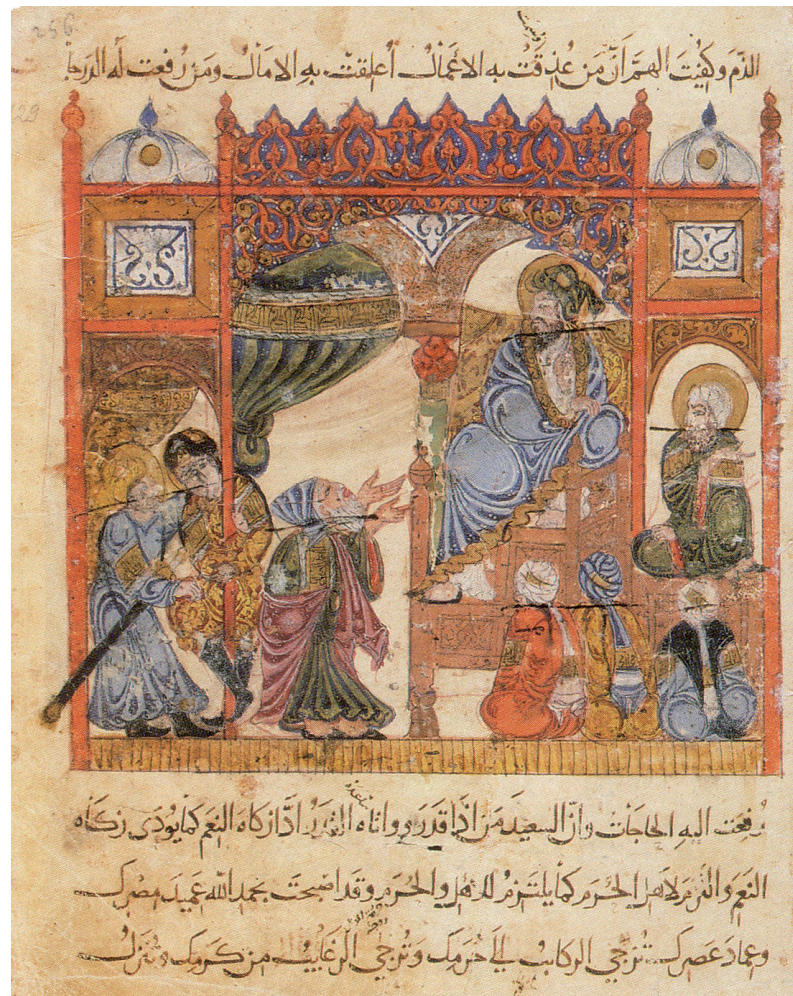 256
وقيت
الذم وكفيت الهم أنّ من عُذِقَت به الاعمال أعلقت به الامال ومن رُفعت له الدرجا
29
رُفِعَت اليه الحاجات وانّ السعيدَ من اذا قدر وواتاه القدر ادّا زكاة النعم كما يودى زكاه
النعم والتزم لاهل الحُرم كما يلتزمُ للاهل والحُرم وقد اصبحت بحمد الله عميد مصرك
وعماد عصرك تُزجي الركائبُ الى حَرمك وتُرجي الرغايبُ من كرمك وتنزل